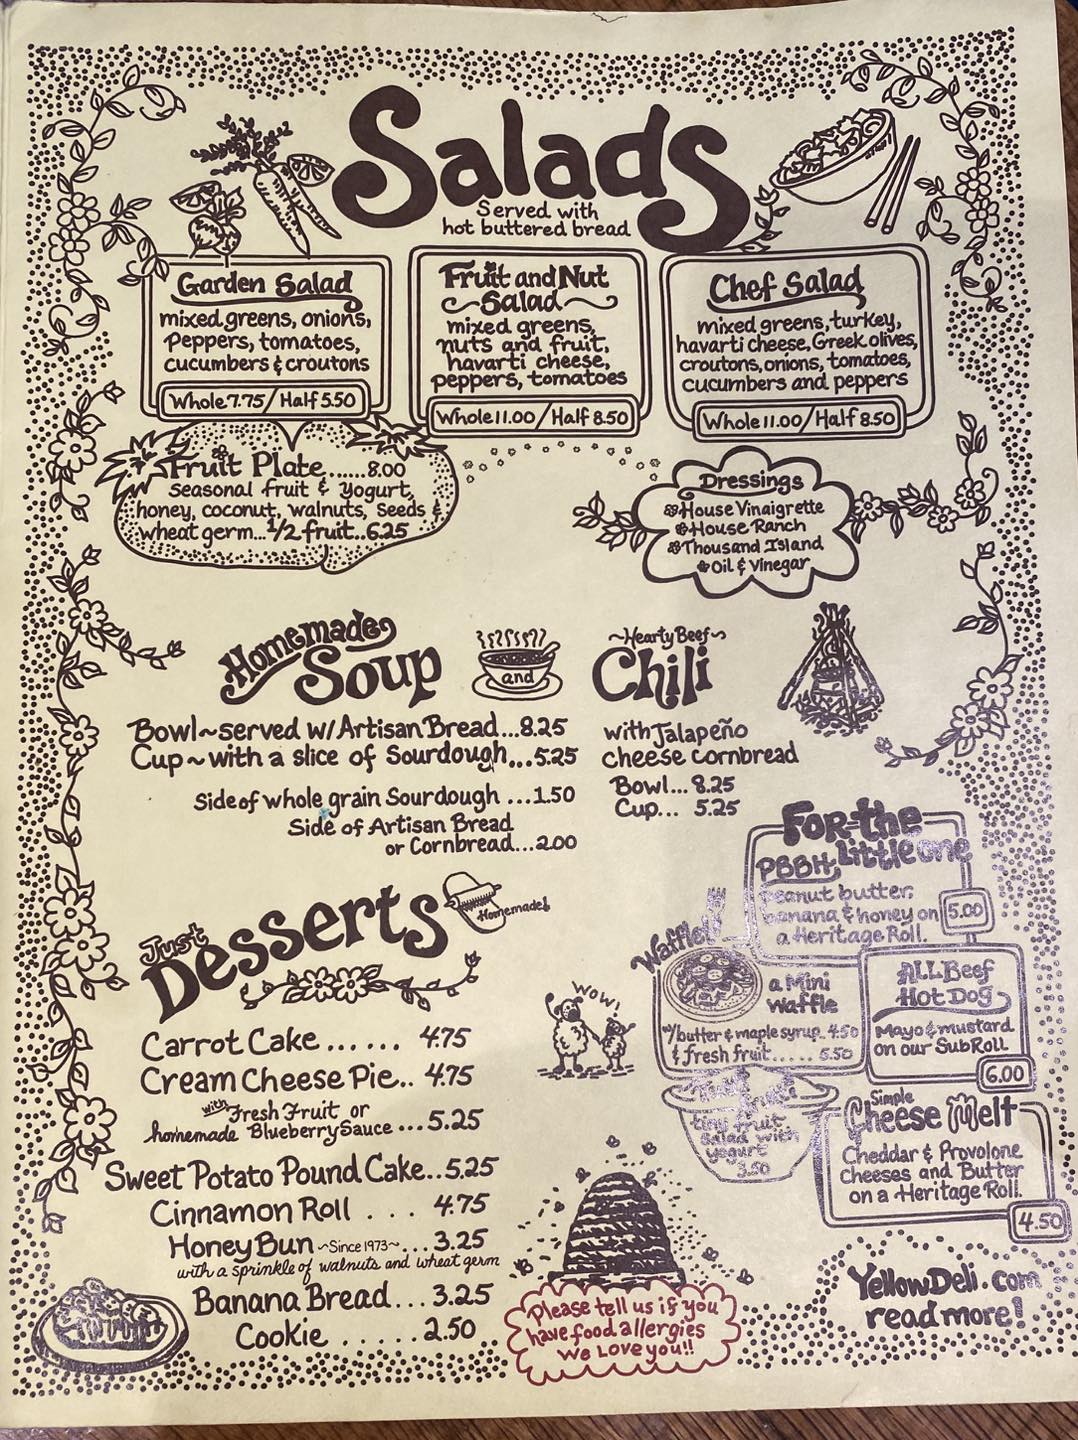 Salads
Served with
hot buttered bread
Garden Salad
mixed greens, onions,
Peppers, tomatoes,
cucumbers & croutons
Whole 7.75/Half 5.50
Fruit and Nut
Salad
mixed greens,
nuts and fruit,
havarti cheese,
peppers, tomatoes
Whole 11.00/Half 8.50
Chef Salad
mixed greens, turkey,
havarti cheese, Greek olives,
croutons, onions, tomatoes,
cucumbers and peppers
Whole 11.00/Half 8.50
Fruit Plate......8.00
Seasonal fruit & Yogurt,
honey, coconut, walnuts, Seeds &
wheat germ...1/2 fruit..6.25
Dressings
House Vinaigrette
House Ranch
Thousand Island
Oil & Vinegar
Homemade
Soup
and
Bowl~served w/Artisan Bread...8.25
Cup~with a slice of Sourdough...5.25
Side of whole grain Sourdough ...1.50
Side of Artisan Bread
or Cornbread...2.00
~Hearty Beef~
Chili
with Jalapeño
cheese cornbread
Bowl... 8.25
Cup... 5.25
Just
Desserts
Homemade!
Carrot Cake ...... 4.75
Cream Cheese Pie.. 4.75
with Fresh Fruit or
homemade Blueberry Sauce ...5.25
Sweet Potato Pound Cake...5.25
Cinnamon Roll . . . 4.75
Honey Bun ~Since 1973~...3.25
with a sprinkle of walnuts and wheat germ
Banana Bread...3.25
Cookie .....2.50
For the
Little one
PBBH
Peanut butter,
banana & honey on
a Heritage Roll.
5.00
Waffle!
a Mini
Waffle
w/butter & maple syrup..4.50
& fresh fruit..... 5.50
ALL Beef
Hot Dog
Mayo & mustard
on our Sub Roll
6.00
WOW!
tiny fruit
salad with
yogurt
3.50
Simple
Cheese Melt
Cheddar & Provolone
Cheeses and Butter
on a Heritage Roll.
4.50
Please tell us if you
have food allergies
We Love you!!
YellowDeli.com
read more!